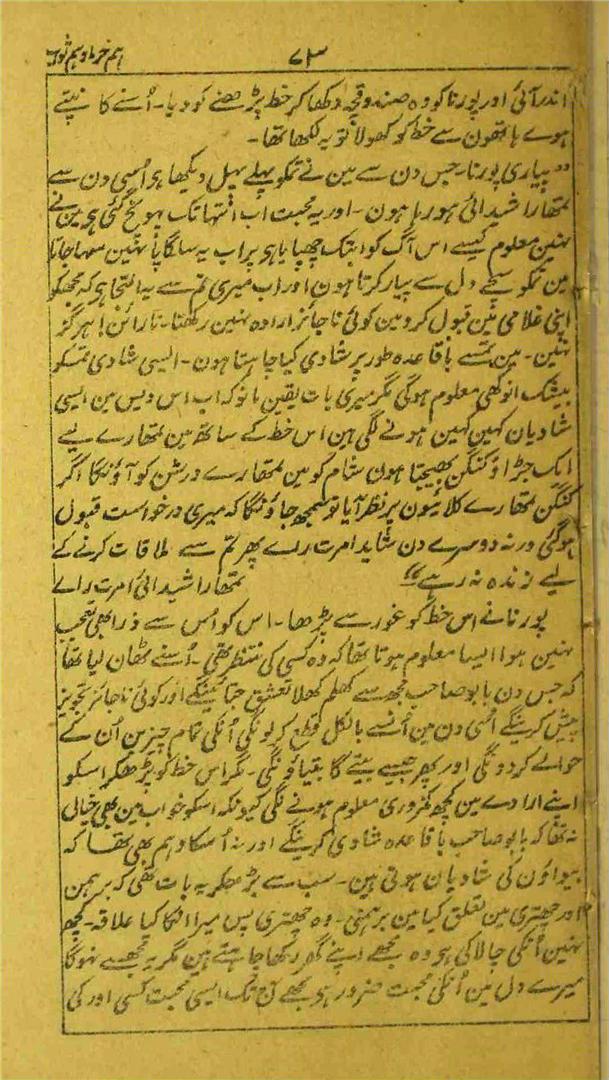 ہم خرما و ہم ثواب
۷۳
اندر آئی اور پورنا کو وہ صندوقچہ دکھا کر خط پڑھنے کو دیا۔ اُسنے کانپتے
ہوے ہاتھون سے خط کو کھولا تو یہ لکھا تھا۔
"پیاری پورنا۔ جس دن سے مین نے تمکو پہلے پہل دیکھا ہو اُسی دن سے
تمھارا شیدائی ہو رہا ہون۔ اور یہ محبت اب انتہا تک پہونچ گئی ہو مین نے
نہین معلوم کیسے اس آگ کو ابتک چھپایا ہو پر اب یہ سلگاپا نہین سہا جاتا
مین تمکو سچے دل سے پیار کرتا ہون اور اب میری تم سے یہ التجا ہو کہ مجھکو
اپنی غلامی مین قبول کرو مین کوئی ناجائز ارادہ نہین رکھتا۔ نارائن! ہرگز
نہین۔ مین تمسے باقاعدہ طور پر شادی کیا چاہتا ہون۔ ایسی شادی تمکو
بیشک انوکھی معلوم ہوگی مگر میری بات یقین مانو کہ اب اس دیس مین ایسی
شادیان کہین کہین ہونے لگی ہین اس خط کے ساتھ مین تمھارے لیے
ایک جڑاؤ کنگن بھیجتا ہون شام کو مین تمھارے درشن کو آؤنگا اگر
کنگن تمھارے کلائیون پر نظر آیا تو سمجھ جاؤنگا کہ میری درخواست قبول
ہوگئی ورنہ دوسرے دن شاید امرت راے پھر تم سے ملاقات کرنے کے
لیے زندہ نہ رہے"
تمھارا شیدائی امرت راے
پورنا نے اس خط کو غور سے پڑھا۔ اس کو اُس سے ذرا بھی تعجب
نہین ہوا ایسا معلوم ہوتا تھا کہ وہ کسی کی منتظر تھی۔ اُسنے ٹھان لیا تھا
کہ جس دن بابو صاحب مجھ سے کھلم کھلا تعشق جتائینگے اور کوئی ناجائز تجویز
پیش کرینگے اُسی دن مین اُنسے بالکل قطع کر لونگی اُنکی تمام چیزین اُن کے
حوالے کر دونگی اور پھر جیسے بیتے گا بتیاؤنگی۔ مگر اس خط کو پڑھکر اسکو
اپنے ارادے مین کچھ کمزوری معلوم ہونے لگی کیونکہ اسکو خواب مین بھی خیال
نہ تھا کہ بابو صاحب باقاعدہ شادی کرینگے اور نہ اُسکا وہم بھی تھا کہ
بیواؤن کی شادیان ہوتی ہین۔ سب سے بڑھکر یہ بات تھی کہ برہمن
اور چھتری مین تعلق کیا مین برہمنی۔ وہ چھتری پس میرا اُنکا کیا علاقہ۔ کچھ
نہین اُنکی چالاکی ہو وہ مجھے اپنے گھر رکھا چاہتے ہین مگر یہ مجھسے نہوگا
میرے دل مین اُنکی محبت ضرور ہو مجھے آج تک ایسی محبت کسی اور کی